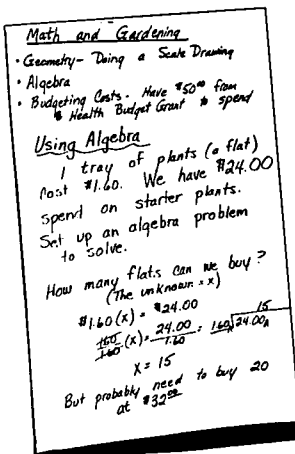 Math and Gardening
• Geometry - Doing a Scale Drawing
• Algebra
• Budgeting Costs - Have $50.00 from
Health Budget Grant to spend
Using Algebra
1 tray of plants (a flat)
cost $1.60. We have $24.00
spend on starter plants.
Set up an algebra problem
to solve.
How many flats can we buy?
(The unknown = x)
$1.60 (x) = $24.00
1.60/1.60 (x) = 24.00/1.60 = 1.60⟌24.00 15
x = 15
But probably need to buy 20
at $32.00